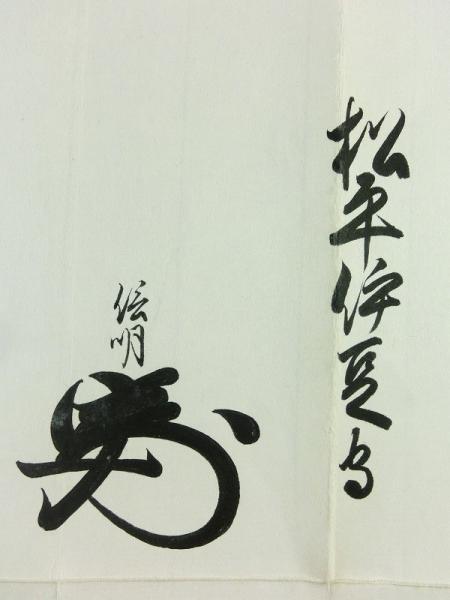 松平伊豆守
信明